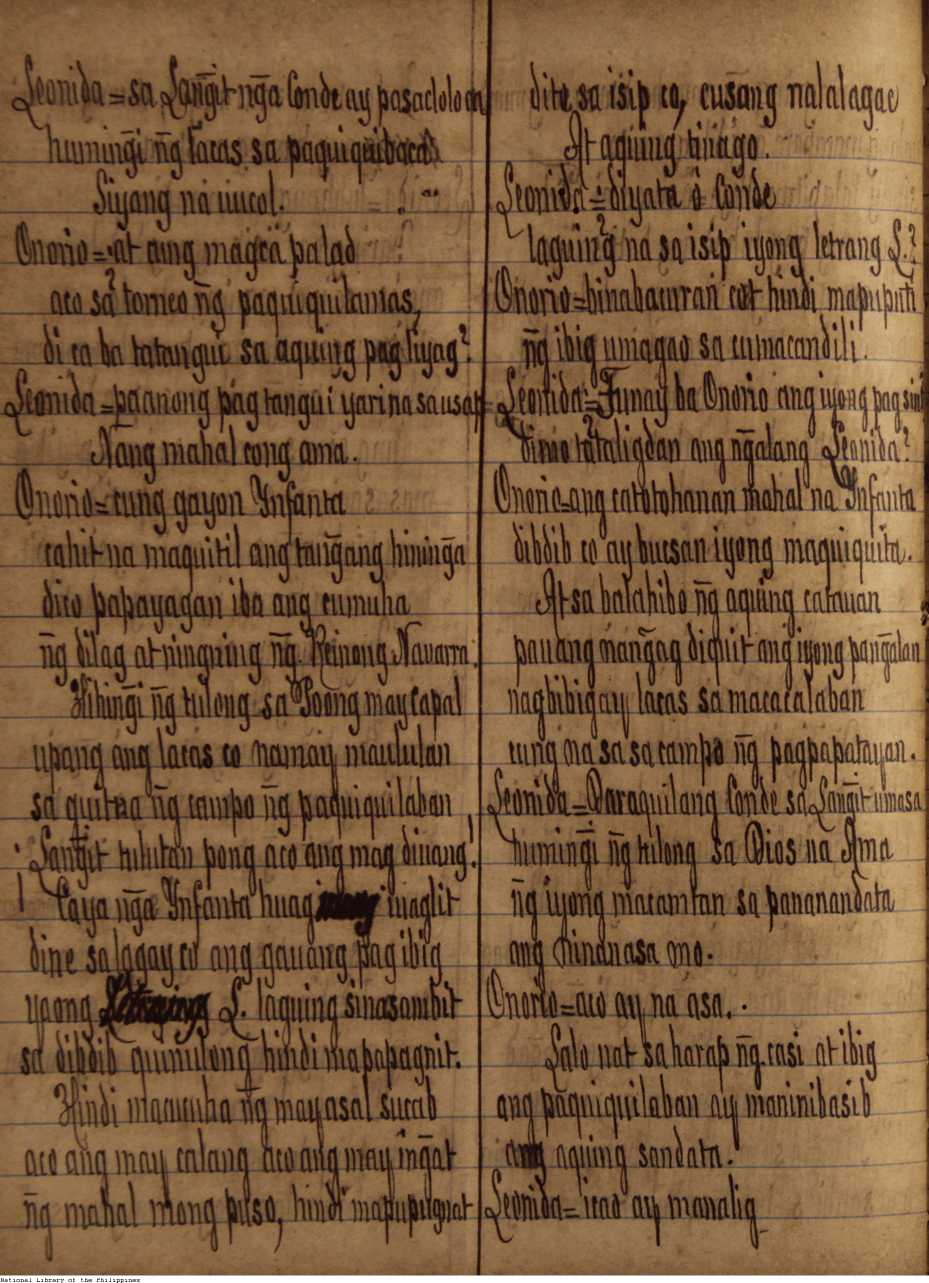 Leonida = sa Lañgit nḡa Conde ay pasaclolo ca
humin̄gi n̄g lacas sa paquiquibaca
Siyang na uucol.
Onorio = at ang magca palad
aco sa torneo n̄g paquiquilamas,
di ca ba tatangui sa aquing pag liyag?
Leonida = paanong pag tangui yari na sa usap =
Nang mahal cong ama.
Onorio = cung gayon Ynfanta
cahit na maquitil ang tan̄gang hinin̄ga
dico papayagan iba ang cumuha
n̄g dilag at ningning n̄g Reinong Navarra.
Hihin̄gi n̄g tulong sa Poong may capal
upang ang lacas co namay maululan
sa guitna n̄g campo n̄g paquiquilaban
¡Lan̄git tulutan pong aco ang mag diuang!
! Caya n̄ga Ynfanta huag maglit
dine sa lagay co ang gauang pag ibig
yaong L. laguing sinasambit
sa dibdib gumulong hindi mapapagnit.
Hindi macucuha n̄g may asal sucab
aco ang may calang aco ang may in̄gat
n̄g mahal mong puso, hindi mapupugnat
dito sa isip co, cusang nalalagac
At aquing tinago.
Leonida = diyata ó Conde
laguing na sa isip iyong letrang L.?
Onorio = binabacuran cot hindi mapuputi
n̄g ibig umagao sa cumacandili.
Leonida = Tunay ba Onorio ang iyong pag
dimo tataligdan ang n̄galang Leonida?
Onorio = ang catotohanan mahal na Ynfanta
dibdib co ay bucsan iyong maquiquita.
At sa balahibo n̄g aquing catauan
pauang nan̄gag diquit ang iyong pan̄galan
nagbibigay lacas sa macacalaban
cung na sa sa campo n̄g pagpapatayan.
Leonida = Daraquilang Conde sa Lan̄git umasa
humin̄gi n̄g tulong sa Dios na Ama
n̄g iyong macamtan sa pananandata
ang ninanasa mo.
Onorio = aco ay na asa.
Lalo nat sa harap n̄g casi at ibig
ang paquiquilaban ay maninibasib
ang aquing sandata.
Leonida = icao ay manalig
National Library of the Philippines